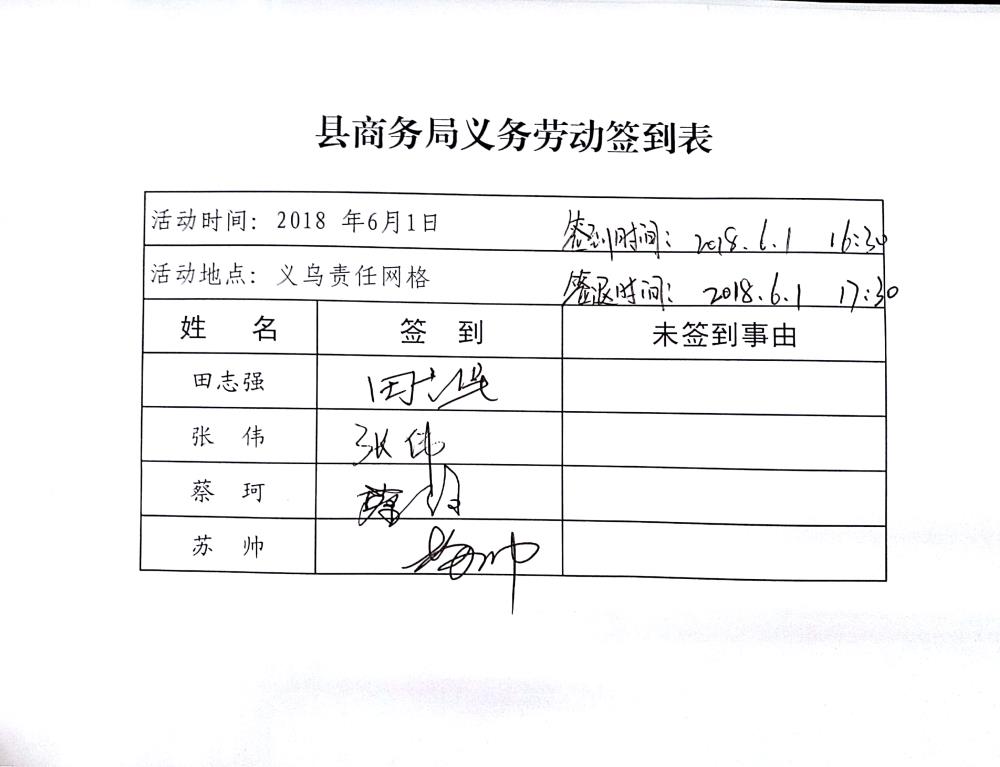 县商务局义务劳动签到表
活动时间：2018 年6月1日 签到时间：2018.6.1 16:30
活动地点：义乌责任网格 签退时间：2018.6.1 17:30
姓 名 签 到 未签到事由
田志强 田志强
张 伟 张伟
蔡 珂 蔡珂
苏 帅 苏帅